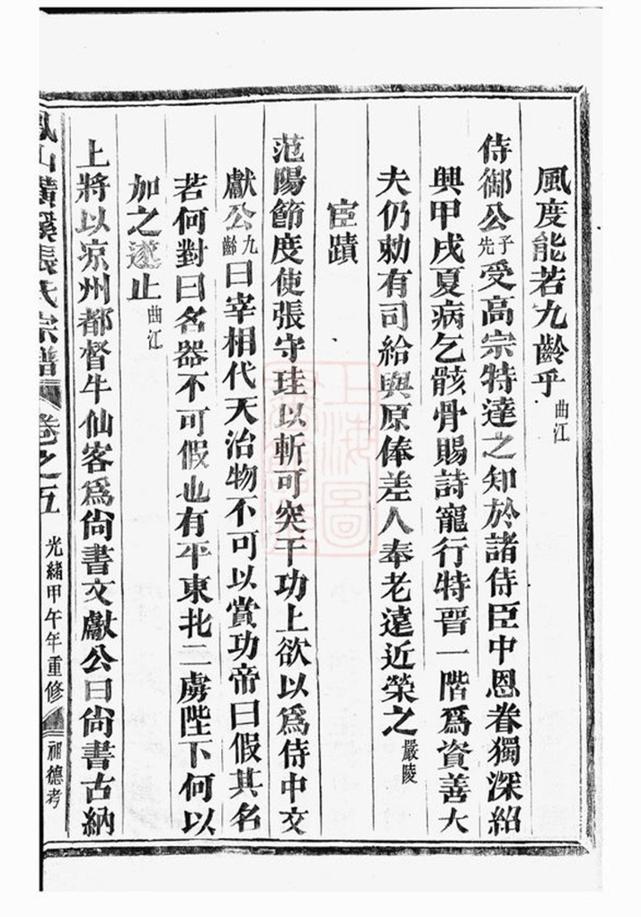 風度能若九齡乎曲江
侍御公子先受高宗特達之知於諸侍臣中恩眷獨深紹
興甲戌夏病乞骸骨賜詩寵行特晉一階爲資善大
夫仍勅有司給與原俸差人奉老遠近榮之嚴陵
宦蹟
范陽節度使張守珪以斬可突干功上欲以爲侍中文
獻公九齡曰宰相代天治物不可以賞功帝曰假其名
若何對曰名器不可假也有平東北二虜陛下何以
加之遂止曲江
上將以凉州都督牛仙客爲尙書文獻公曰尙書古納
鳳山橫溪張氏宗譜 卷之五 光緒甲午年重修 祖德考
上海圖